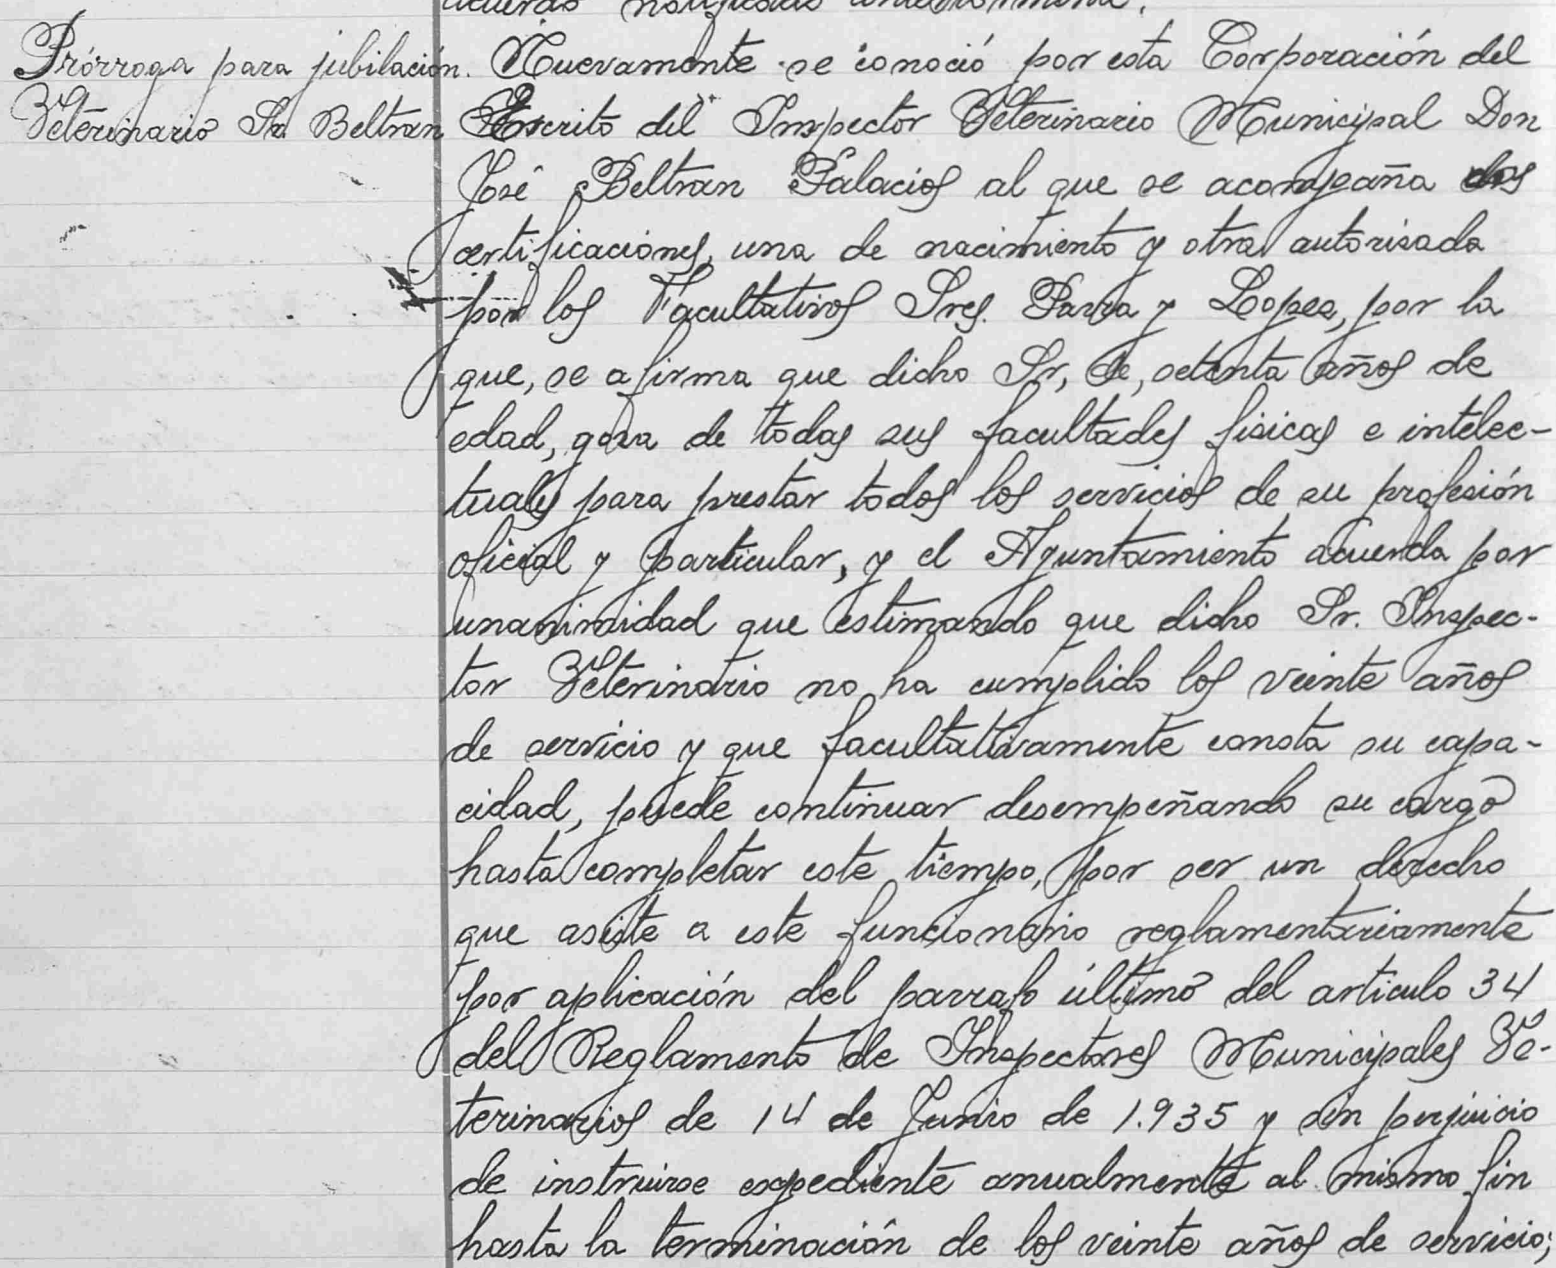 acuerdo notificado anteriormente.
Prórroga para jubilación.
Veterinario Sr. Beltran
Nuevamente se conoció por esta Corporación del
Escrito del Inspector Veterinario Municipal Don
José Beltran Palacios al que se acompaña dos
certificaciones, una de nacimiento y otra autorisada
por los Facultativos Sres. Parra y Lopez, por la
que, se afirma que dicho Sr, de, setenta años de
edad, goza de todas sus facultades fisicas e intelec-
tuales para prestar todos los servicios de su profesión
oficial y particular, y el Ayuntamiento acuerda por
unanimidad que estimando que dicho Sr. Inspec-
tor Veterinario no ha cumplido los veinte años
de servicio y que facultativamente consta su capa-
cidad, puede continuar desempeñando su cargo
hasta completar este tiempo, por ser un derecho
que asiste a este funcionario reglamentariamente
por aplicación del parrafo último del articulo 34
del Reglamento de Inspectores Municipales Ve-
terinarios de 14 de Junio de 1.935 y sin perjuicio
de instruirse expediente anualmente al mismo fin
hasta la terminación de los veinte años de servicio;